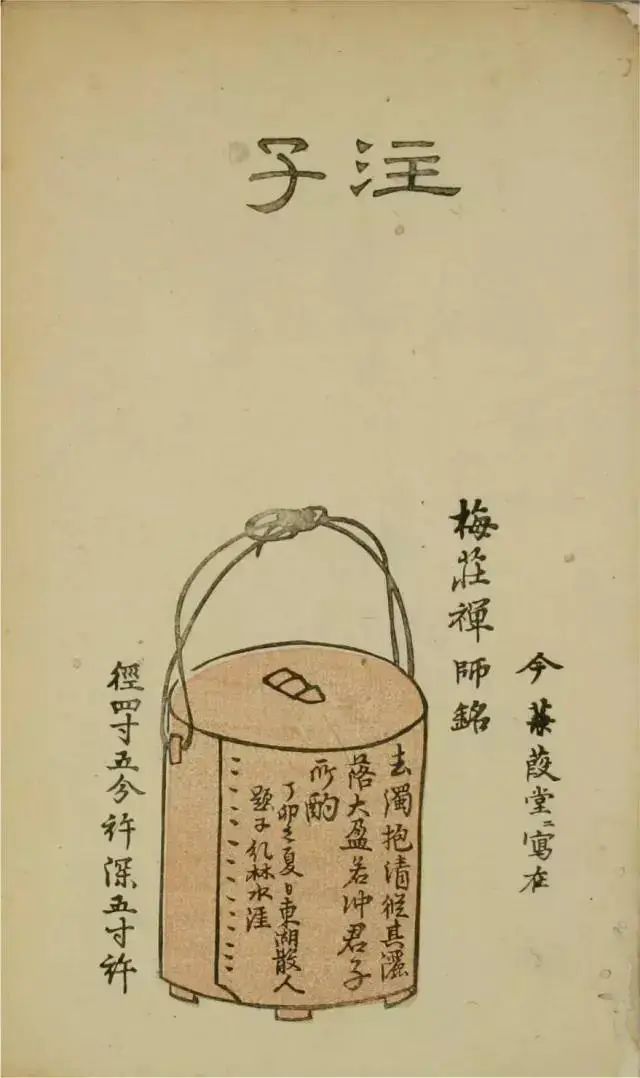 注子
今蒹葭堂ニ寫在
梅莊禪師銘
去濁抱清縱其灑
落大盈若冲君子
所酌
丁卯之夏日東湖散人
題于糺林水涯
徑四寸五分許深五寸許